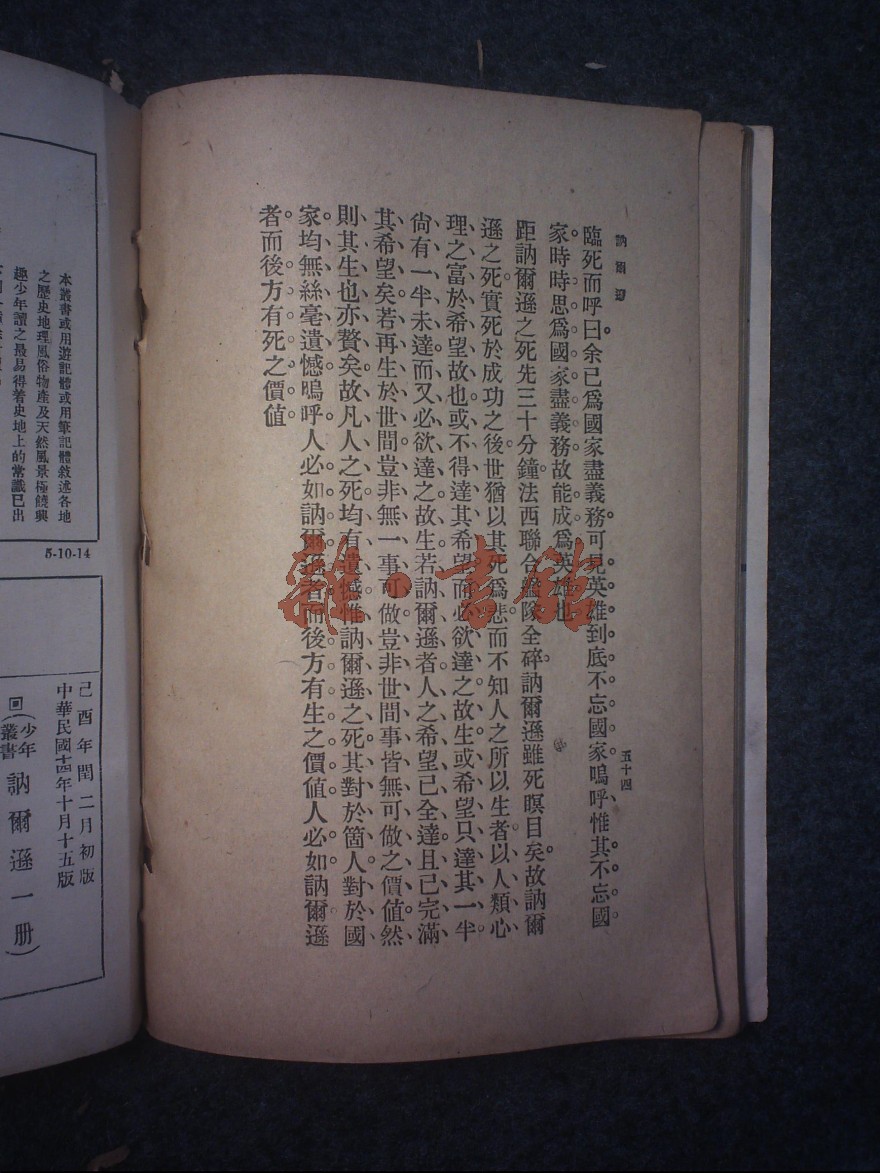 訥爾遜
五十四
臨死而呼曰。余已爲國家盡義務。可見英雄到底不忘國家。嗚呼。惟其不忘國
家。時時思爲國家盡義務。故能成爲英雄也
距訥爾遜之死先三十分鐘。法西聯合艦隊全碎。訥爾遜雖死瞑目矣。故訥爾
遜之死。實死於成功之後。世猶以其死爲悲。而不知人之所以生者。以人類心
理之富於希望故也。或不得達其希望。而必欲達之故生。或希望只達其一半、
尙有一半未達。而又必欲達之故生。若訥爾遜者、人之希望已全達、且已完滿
其希望矣、若再生於世間、豈非無一事可做、豈非世間事皆無可做之價値、然
則其生也亦贅矣、故凡人之死、均有遺憾、惟訥爾遜之死、其對於箇人、對於國
家。均無絲毫遺憾。嗚呼。人必如訥爾遜者。而後方有生之價値。人必如訥爾遜
者。而後方有死之價値
雜·書館
本叢書或用遊記體或用筆記體敘述各地
之歷史地理風俗物產及天然風景極饒興
趣少年讀之最易得着史地上的常識已出
5-10-14
己酉年閏二月初版
中華民國十四年十月十五版
回(少年叢書訥爾遜一册)